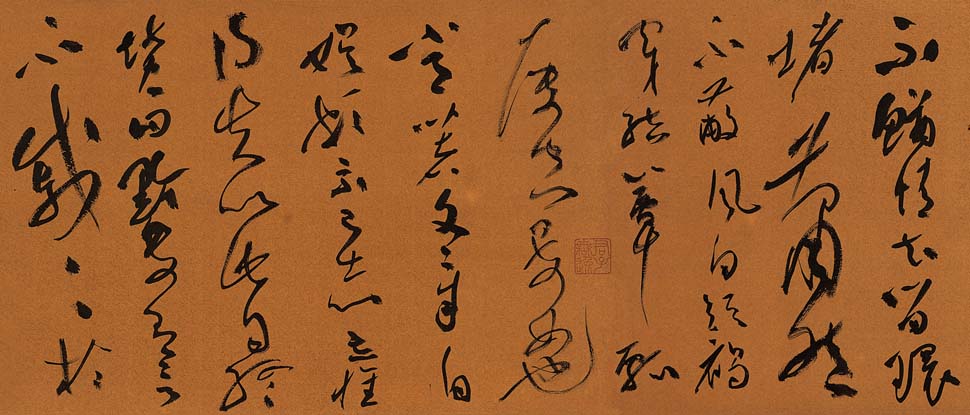 不吝情去留環
堵蕭然
不蔽風日短褐
穿結簞瓢
屢空晏如也
常著文章自
娛頗示己志忘懷
得失以此自終
贊曰黔婁有言
不戚戚於